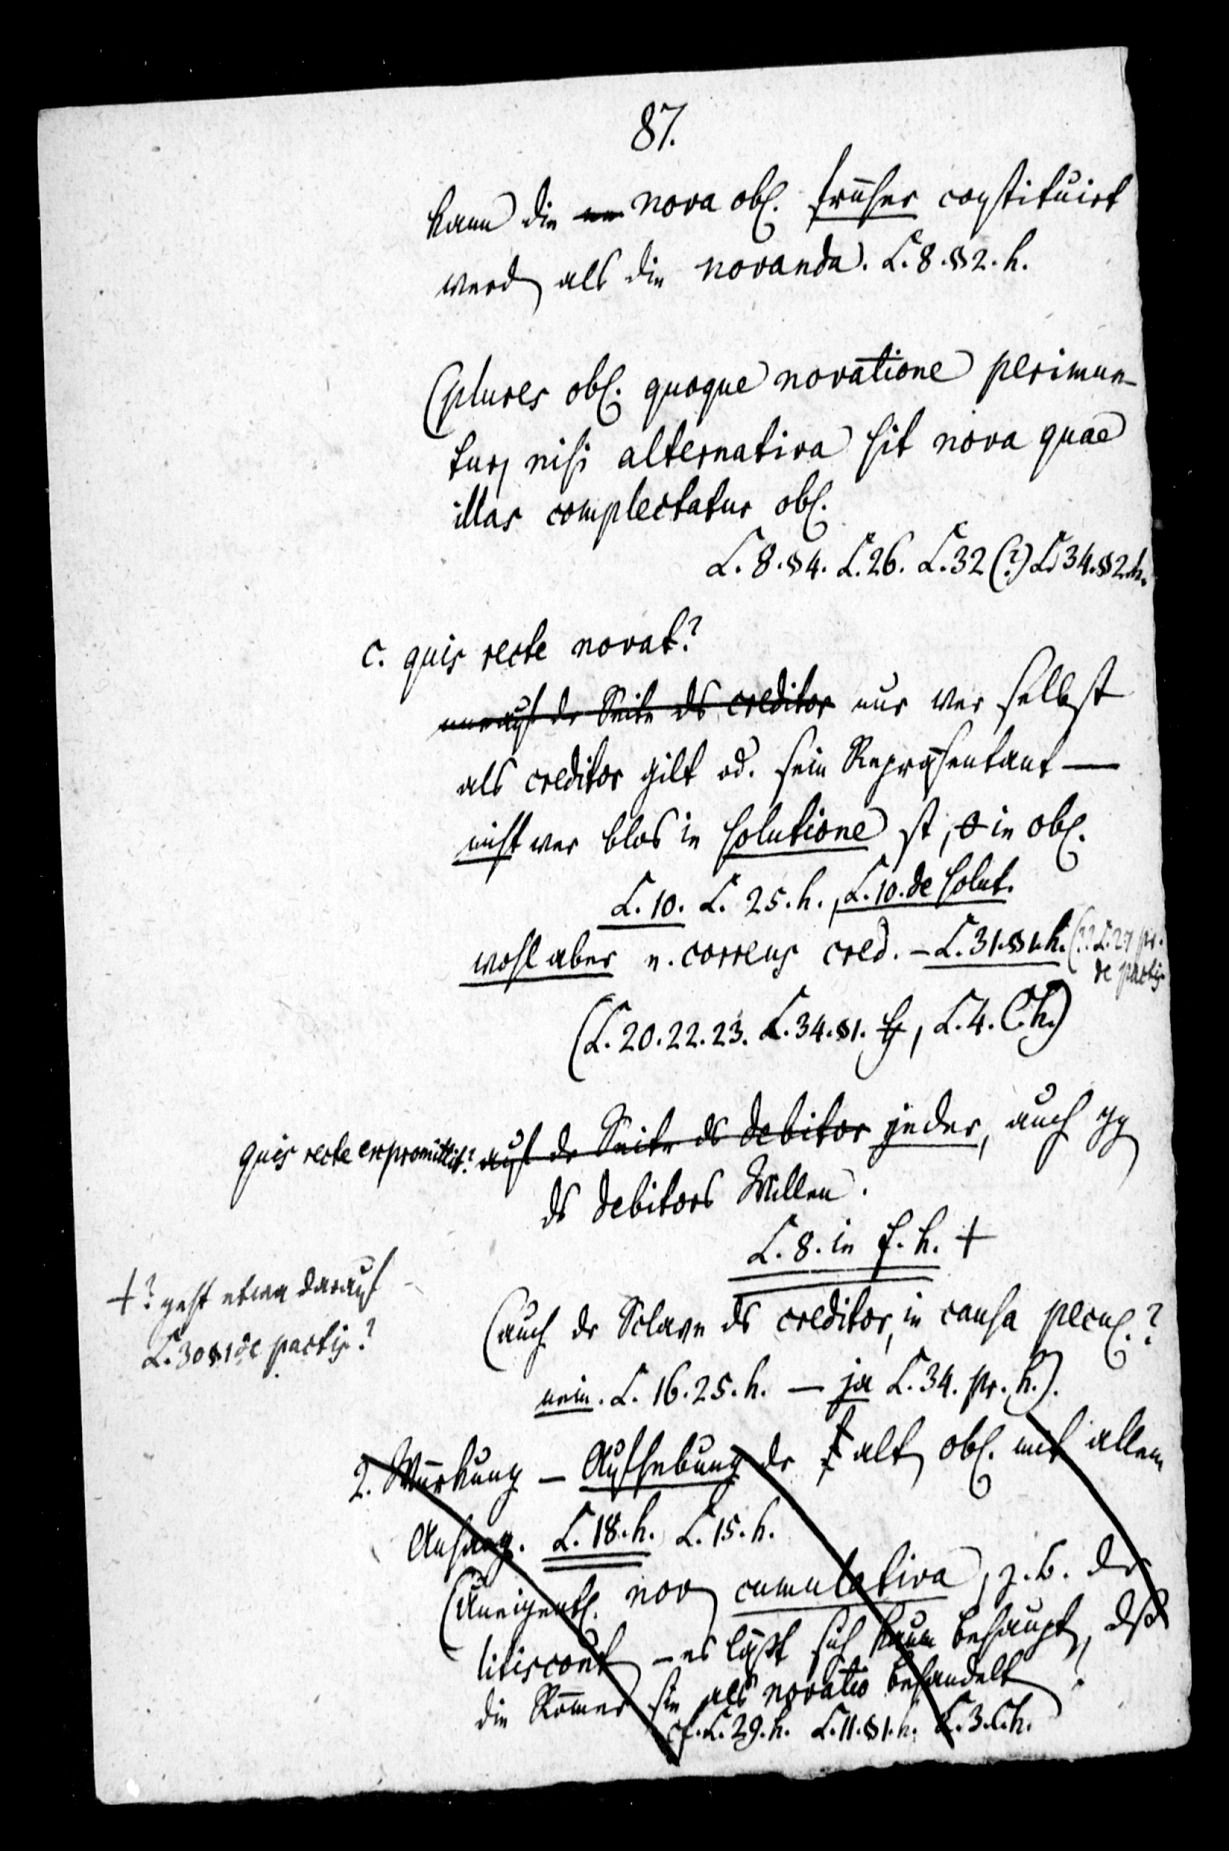 87.
kann die nova obl. früher constituirt
werd als die novanda. L. 8. §2. h.
(plures obl. quoque novatione perimun-
tur, nisi alternativa sit nova quae
illas complectatur obl.
L. 8. §4. L. 26. L. 32 (?) L. 34. §2. h.
c. quis recte novat?
nur auf der Seite ds creditor nur wer selbst
als creditor gilt od. sein Repräsentant —
nicht wer blos in solutione st, in obl.
L. 10. L. 25. h., L. 10. de solut.
wohl aber e. correus cred. – L. 31. §1. h. (?? L. 27 pr.
de pactis
(L. 20. 22. 23. L. 34. §1. h, L. 4. C. h.)
quis recte expromittit? auf der Seite ds debitor jeder, auch gg
ds debitors Willen.
L. 8. in f. h. +
+ ? geht etwa darauf
L. 30 §1 de pactis?
(auch der Sclave ds creditor, in causa pecul.?
nein. L. 16. 25. h. — ja L. 34. pr. h.).
2. Würkung – Aufhebung der alt obl. mit allem
Anhang. L. 18. h. L. 15. h.
(Uneigentl. nov cumulativa, z. b. der
litiscont – es läßt sich kaum behaupt, dß
die Römer sie als novatio behandelt
cf. L. 29. h. L. 11. §1. h. L. 3. C. h.